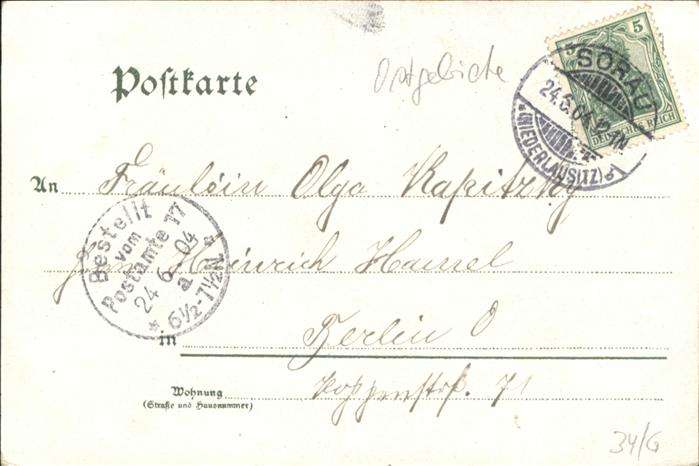 Postkarte
Ostgebiete
5
DEUTSCHES REICH
SORAU
24.6.04
*(NIEDERLAUSITZ)a
An Fräulein Olga Kapitzky
Bestellt
vom
Postamte 17
24 6 04
a
* 6½-7½N *
Heinrich Hansel
in Berlin O
Wohnung
(Straße und Hausnummer)
Koppenstr. 71
34/G